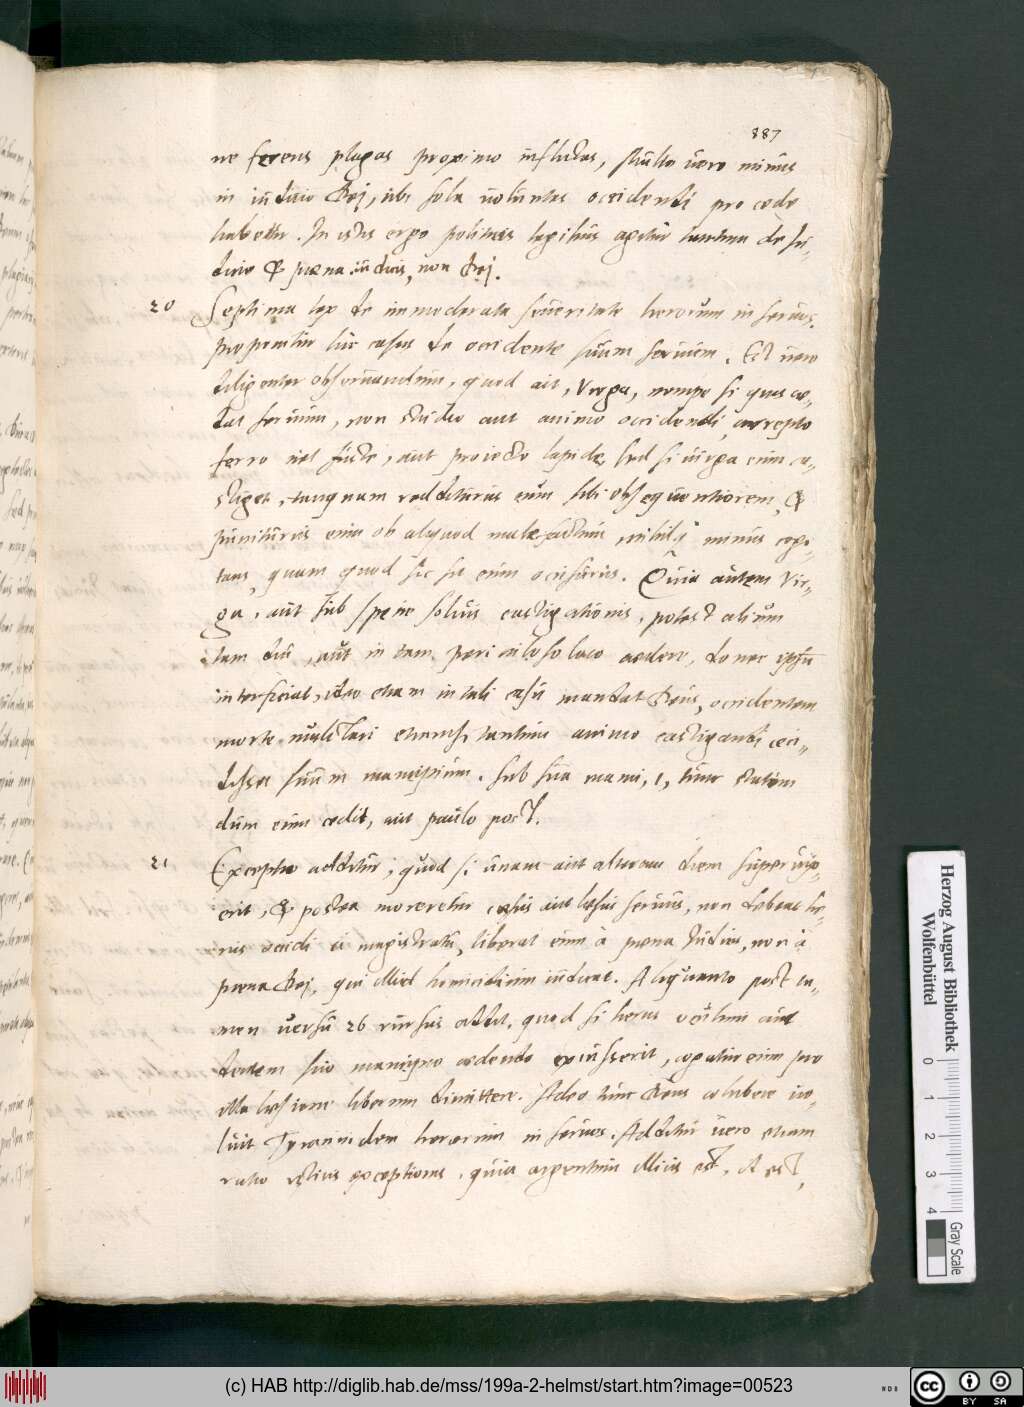 887
ne ferens plagas proximo inflictas, multo vero minus
in iudicio Dej, ubi sola voluntas occidendi pro caede
habetur. In istis ergo politicis legibus agitur tantum de iu-
dicio & poena iudicis, non Dej.
20 Septima lex de immoderata severitate herorum in servos.
proponitur hic casus de occidente suum servum. Est vero
diligenter observandum, quod ait, Virga, nempe si quis cae-
dat servum, non studio aut animo occidendi, arrepto
ferro vel fuste, aut proiecto lapide, sed si virga eum ca-
stiget, tanquam redditurus eum sibi obsequentiorem, &
puniturus eum ob aliquod malefactum, nihilque minus cogi-
tans, quam quod sic sit eum occisurus. Quia autem Vir-
ga, aut sub specie solius castigationis, potest alium
tam diu, aut in tam periculoso loco caedere, donec ipsum
interficiat, ideo etiam in tali casu mandat Deus, occidentem
morte mulctari etiamsi tantum animo castigandi ceci-
disset suum mancipium. sub sua manu, i, tunc statim
dum eum cedit, aut paulo post.
21 Exceptio additur, quod si unam aut alteram diem supervix-
erit, & postea moreretur caesus aut laesus servus, non debeat he-
rus occidi a magistratu, liberat eum à poena Iudicis, non à
poena Dej, qui illud homicidium iudicat. Aliquanto post ta-
men versu 26 rursus addit, quod si herus oculum aut
dentem suo mancipio caedendo excusserit, cogatur eum pro
illa laesione liberum dimittere. Adeo hinc Deus cohibere vo-
luit Tyrannidem herorum in servos. Additur vero etiam
ratio istius exceptionis, quia argentum illius est. id est,
Herzog August Bibliothek
Wolfenbüttel
0 1 2 3 4
Gray Scale
(c) HAB http://diglib.hab.de/mss/199a-2-helmst/start.htm?image=00523
cc BY SA